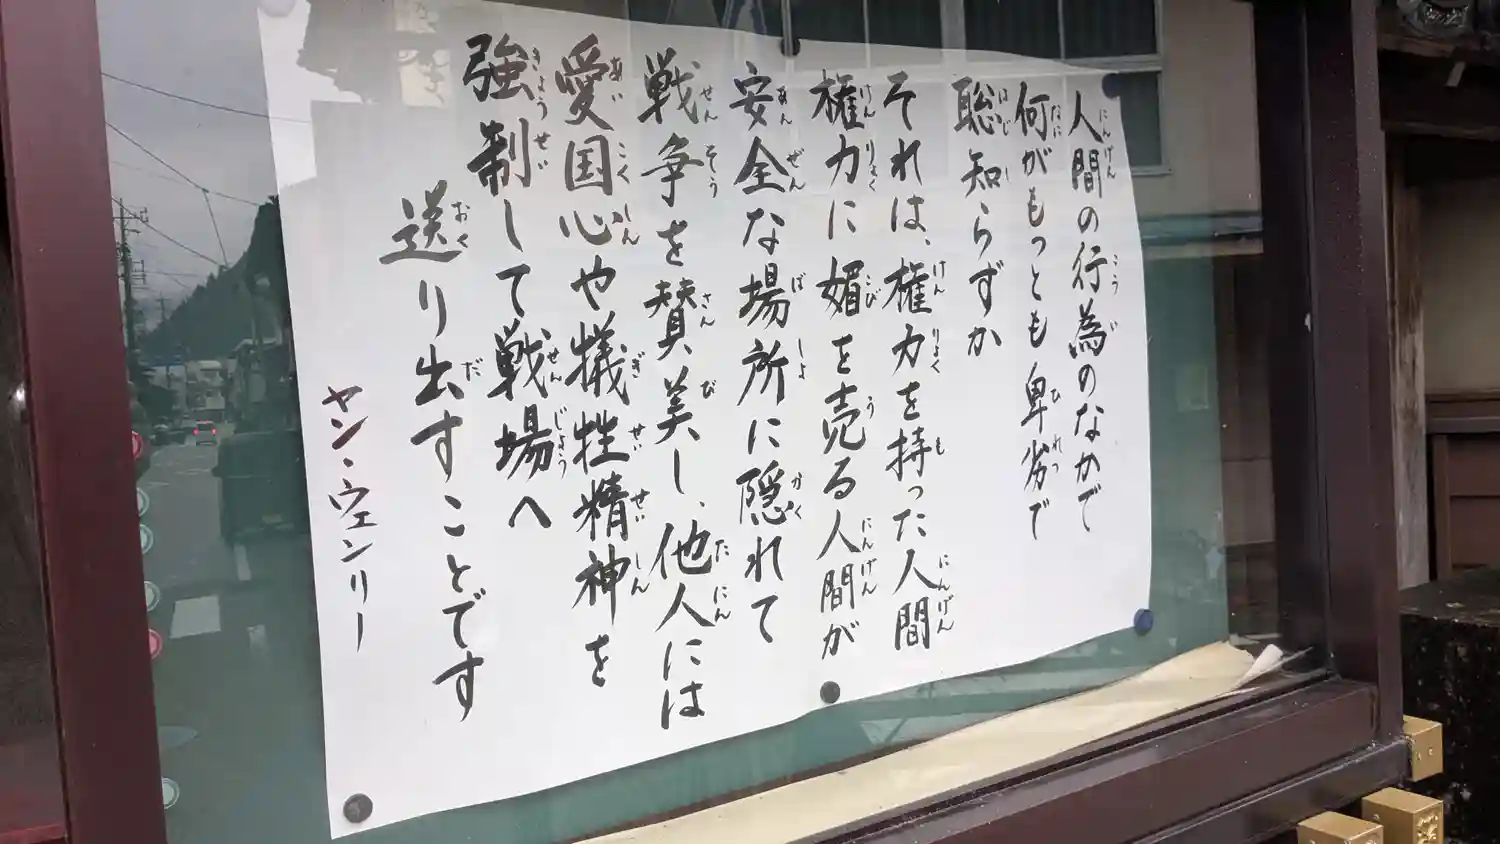 人間の行為のなかで
何がもっとも卑劣で
聡知らずか
それは、権力を持った人間
権力に媚を売る人間が
安全な場所に隠れて
戦争を賛美し、他人には
愛国心や犠牲精神を
強制して戦場へ
送り出すことです
ヤン・ウェンリー